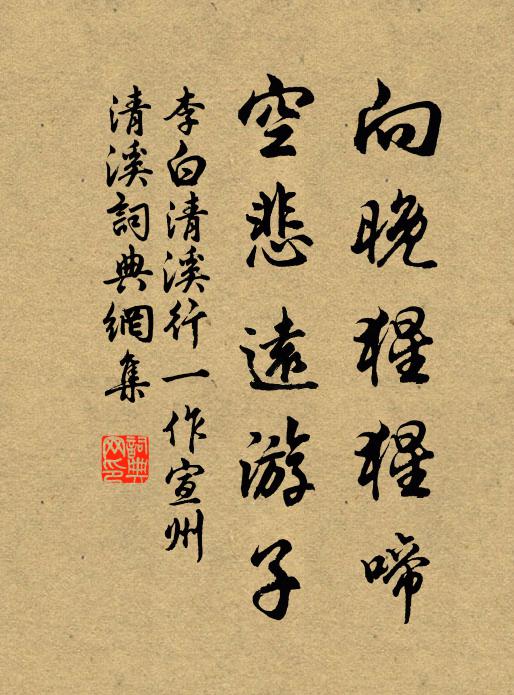 向晚猩猩啼
空悲遠游子
李白清溪行一作宣州
清溪詞典網集
詞典网印